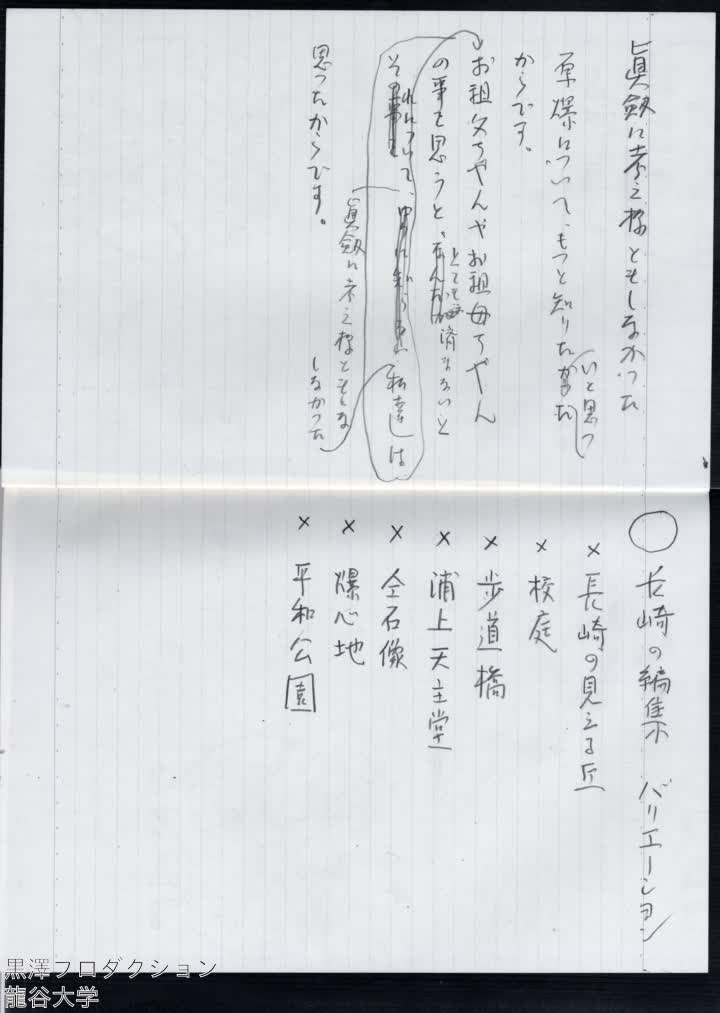 眞劔に考え様ともしなかった
原爆について、もっと知りたいと思った
からです。
お祖父ちゃんやお祖母ちゃん
の事を思うと、とても済まないと
それについて、私達は
眞劔に考え様とも
しなかった
思ったからです。
○ 長崎の編集 バリエーション
× 長崎の見える丘
× 校庭
× 歩道橋
× 浦上天主堂
× 仝石像
× 爆心地
× 平和公園
黒澤プロダクション
龍谷大学